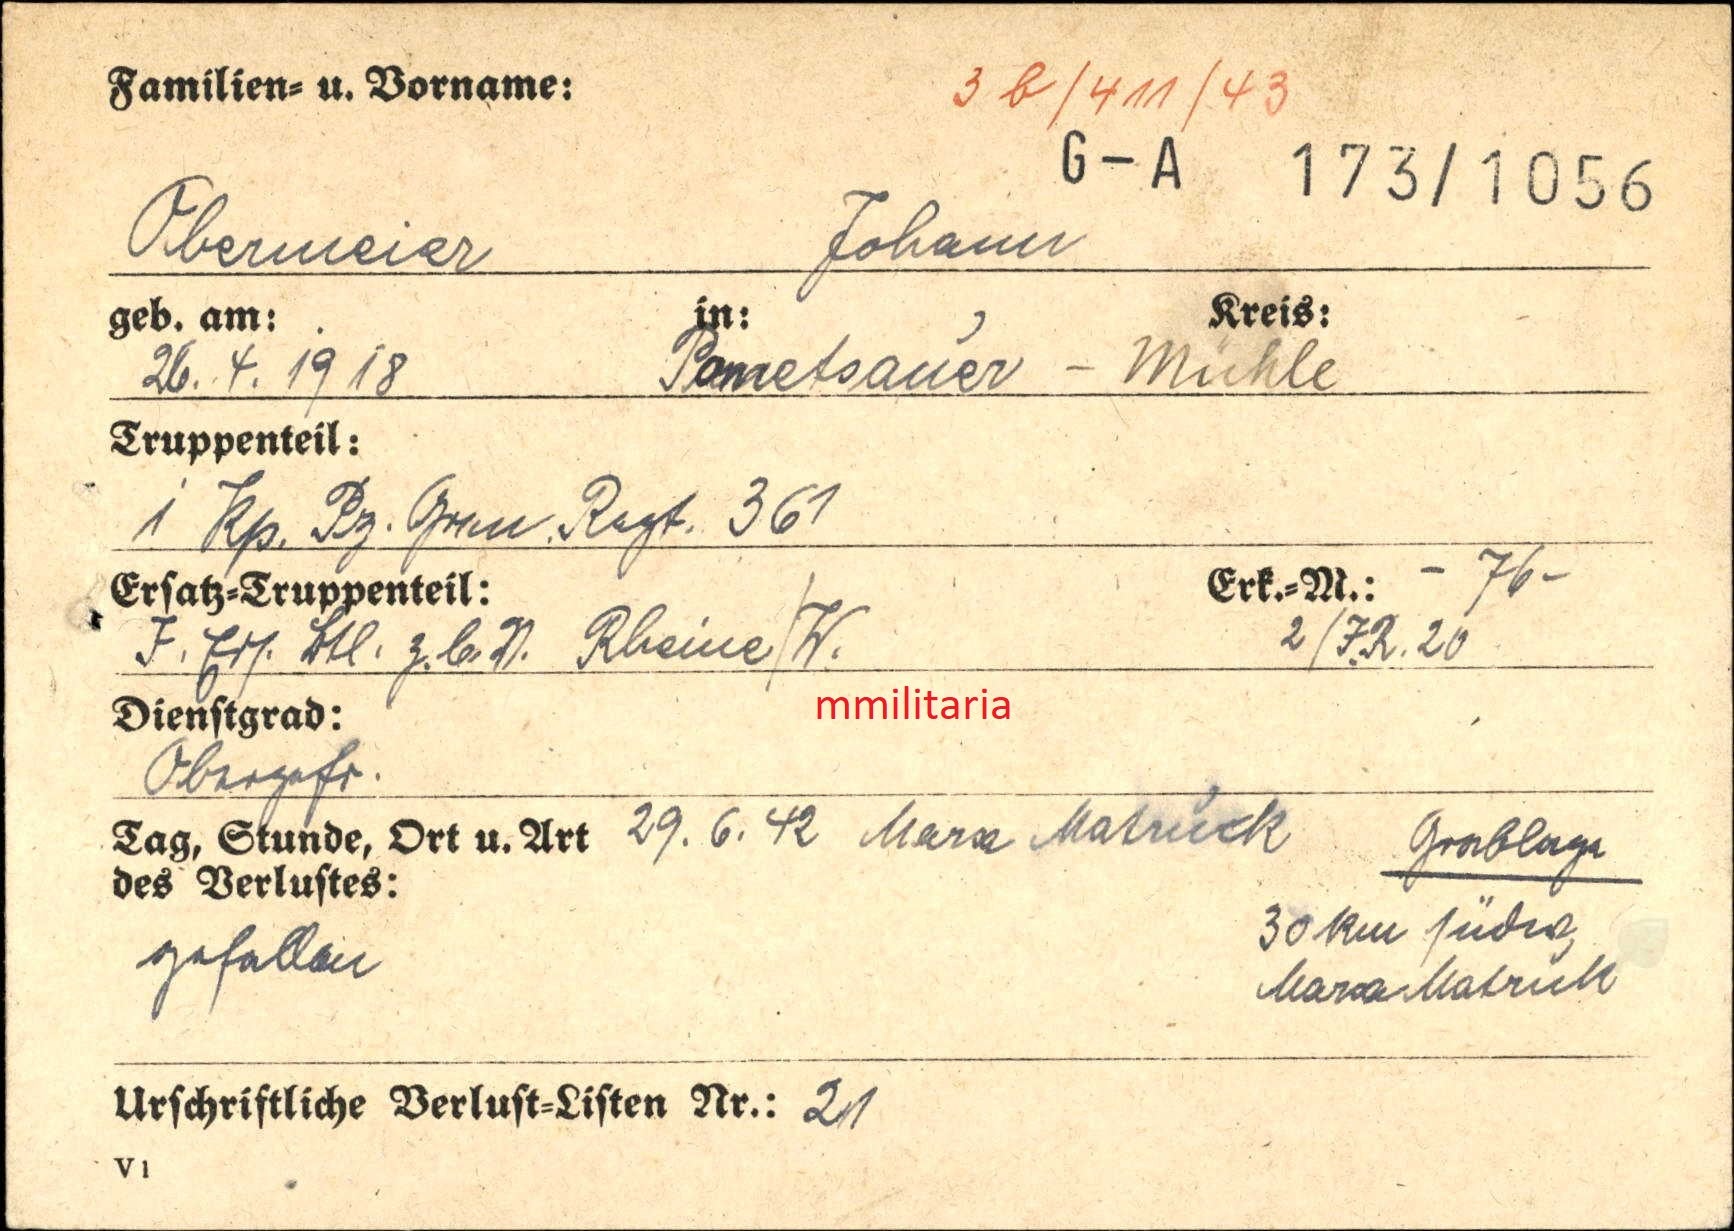 Familien- u. Vorname:
3 b/411/43
G-A 173/1056
Obermeier Johann
geb. am: in: Kreis:
26. 4. 1918 Pometsauer - Mühle
Truppenteil:
1 Kp. Pz. Gren. Regt. 361
Ersatz-Truppenteil: Erk.-M.: - 76 -
I. Ers. Btl. z.b.V. Rheine/W. 2/I.R. 20
Dienstgrad:
Obergefr.
Tag, Stunde, Ort u. Art 29. 6. 42 Marsa Matruck Grablage
des Verlustes:
30 km südw,
gefallen
Marsa Matruk
Urschriftliche Verlust-Listen Nr.: 21
V 1
mmilitaria